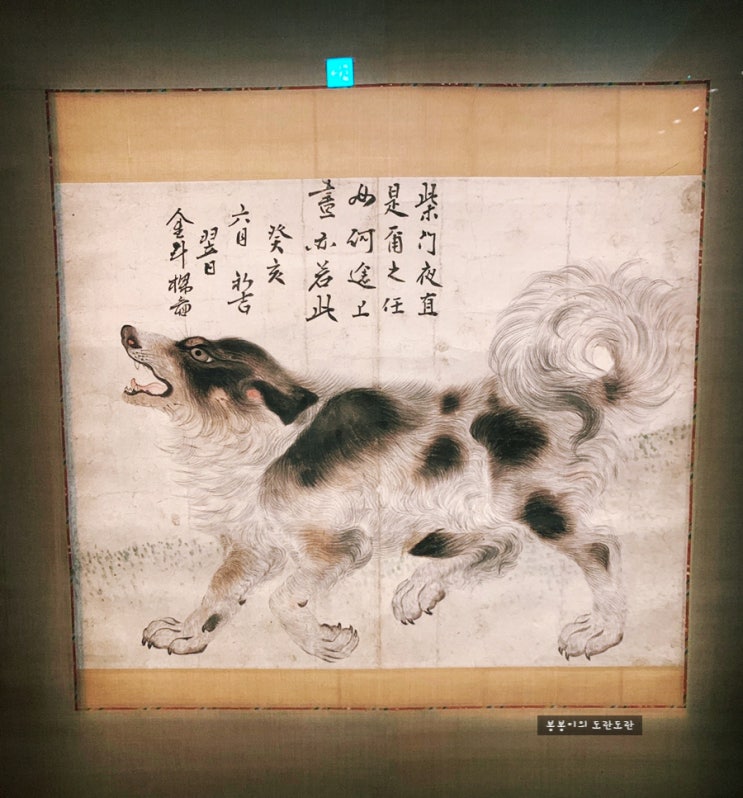 柴門夜直
是爾之任
如何途上
晝亦若此
癸亥
六月初吉
翌日
金斗樑圖
봉봉이의 도란도란